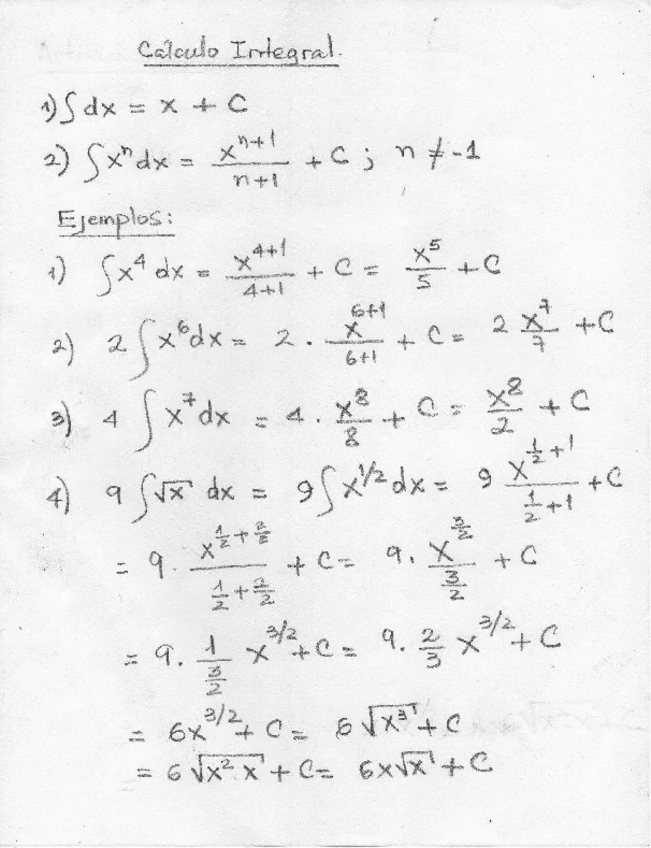 Cálculo Integral.
1) ∫ dx = x + C
2) ∫ xⁿ dx = x^(n+1)/(n+1) + C ; n ≠ -1
Ejemplos:
1) ∫ x⁴ dx = x^(4+1)/(4+1) + C = x⁵/5 + C
2) 2 ∫ x⁶ dx = 2 · x^(6+1)/(6+1) + C = 2 x⁷/7 + C
3) 4 ∫ x⁷ dx = 4 · x⁸/8 + C = x⁸/2 + C
4) 9 ∫ √x dx = 9 ∫ x^(1/2) dx = 9 x^(1/2+1)/(1/2+1) + C
= 9 · x^(1/2+2/2)/(1/2+2/2) + C = 9 · x^(3/2)/(3/2) + C
= 9 · 1/(3/2) x^(3/2) + C = 9 · 2/3 x^(3/2) + C
= 6x^(3/2) + C = 6 √(x³) + C
= 6 √(x² x) + C = 6x√x + C